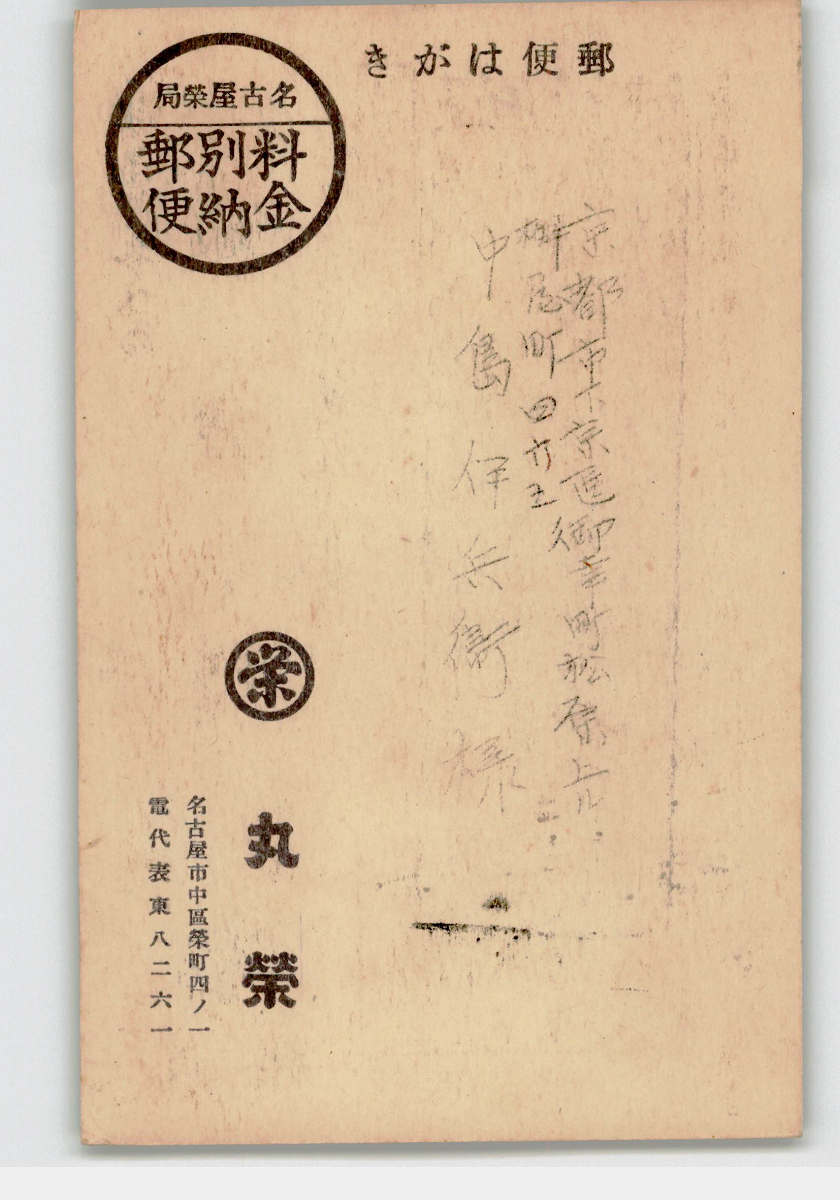 郵便はがき
名古屋榮局
料金別納郵便
京都市下京區御幸町松原上ル
桝屋町四六五
中島伊兵衛様
榮
丸榮
名古屋市中區榮町四ノ一
電代表東八二六一